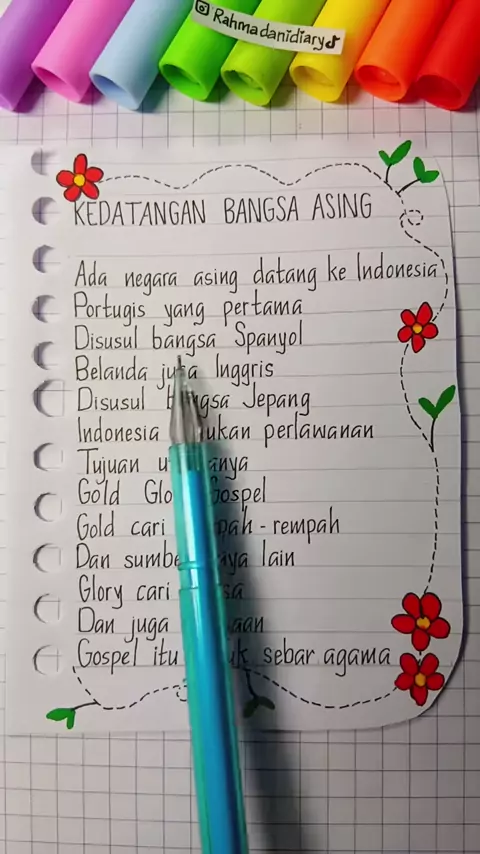 Rahmadanidiary
KEDATANGAN BANGSA ASING
Ada negara asing datang ke Indonesia
Portugis yang pertama
Disusul bangsa Spanyol
Belanda juga Inggris
Disusul bangsa Jepang
Indonesia perlawanan
Tujuan
Gold Gospel
Gold cari - rempah
Dan lain
Glory cari
Dan juga
Gospel itu sebar agama